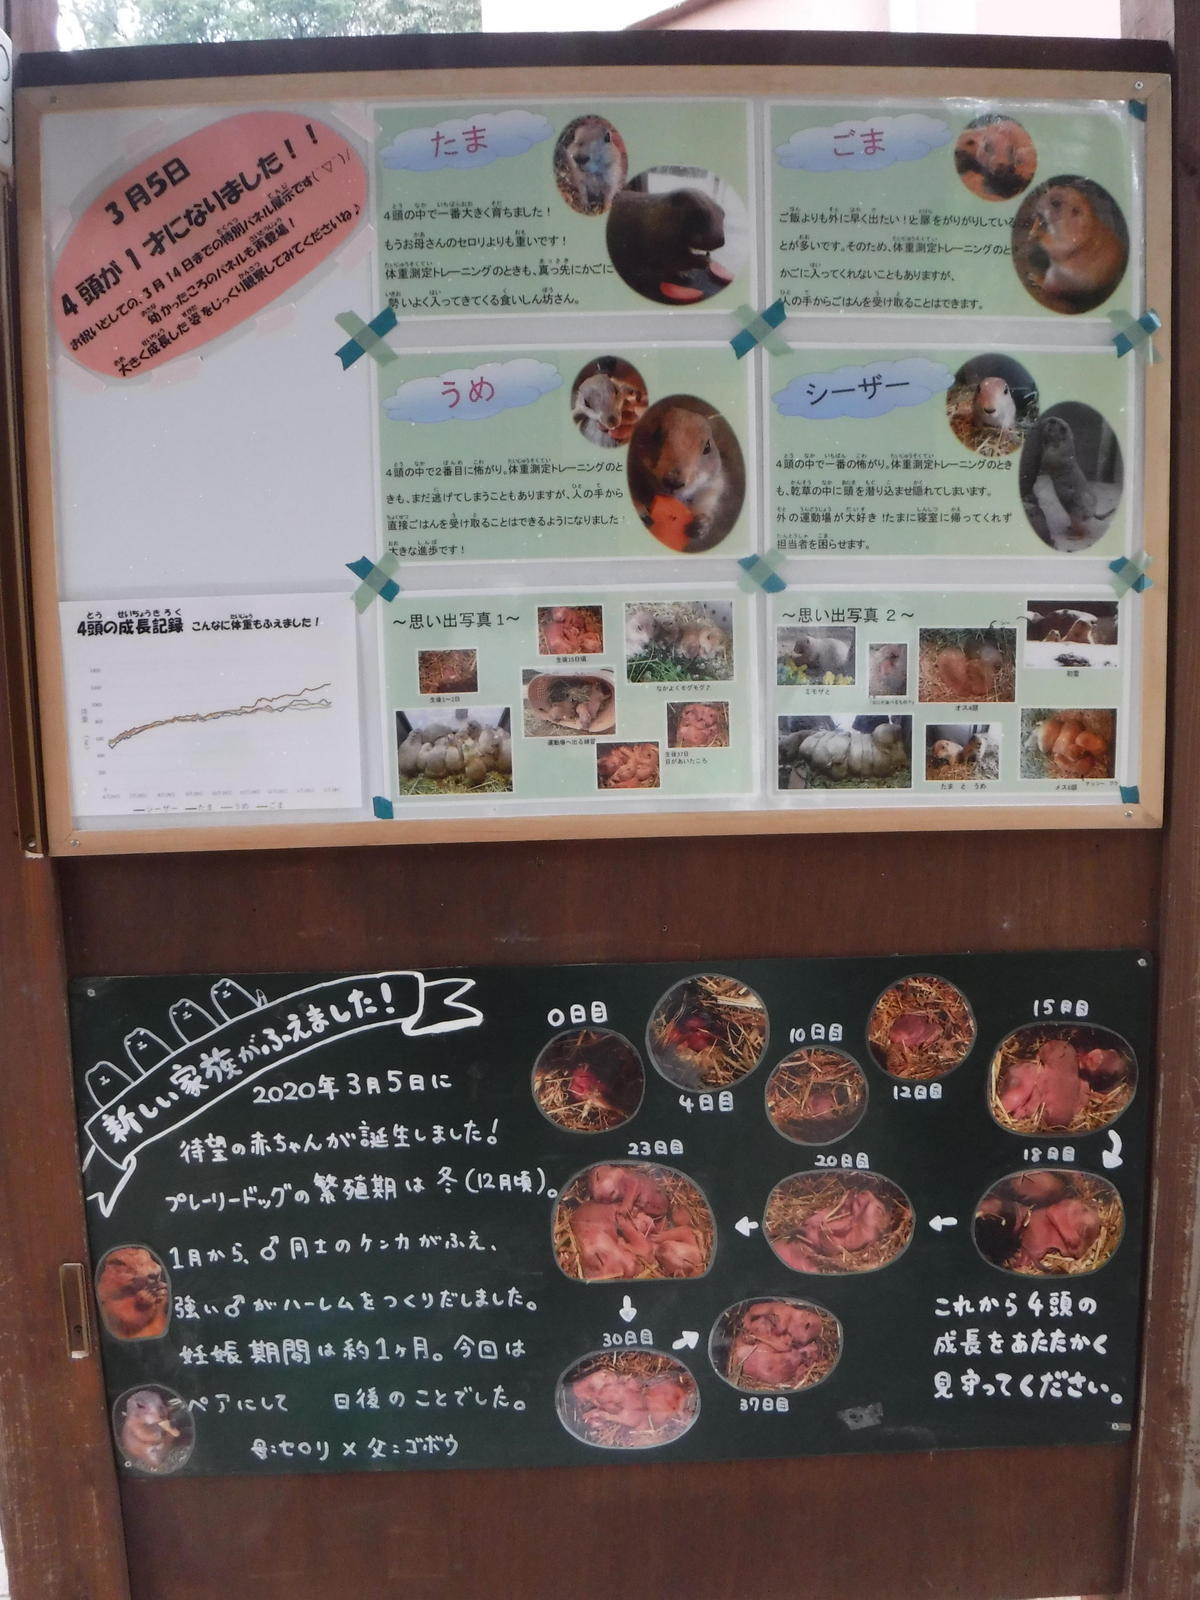 3月5日
4頭が1才になりました!!
お祝いとしての、3月14日までの特別パネル展示です(˘▽˘)/
幼かったころのパネルも再登場!
大きく成長した姿をじっくり観察してみてくださいね♪
たま
4頭の中で一番大きく育ちました!
もうお母さんのセロリよりも重いです!
体重測定トレーニングのときも、真っ先にかごに
勢いよく入ってきてくる食いしん坊さん。
ごま
ご飯よりも外に早く出たい!と扉をがりがりしている
とが多いです。そのため、体重測定トレーニングのとき
かごに入ってくれないこともありますが、
人の手からごはんを受け取ることはできます。
うめ
4頭の中で2番目に怖がり。体重測定トレーニングのと
きも、まだ逃げてしまうこともありますが、人の手から
直接ごはんを受け取ることはできるようになりました!
大きな進歩です!
シーザー
4頭の中で一番の怖がり。体重測定トレーニングのとき
も、乾草の中に頭を潜り込ませ隠れてしまいます。
外の運動場が大好き!たまに寝室に帰ってくれず
担当者を困らせます。
4頭の成長記録 こんなに体重もふえました!
シーザー たま うめ ごま
~思い出写真1~
生後1~2日
生後15日頃
なかよくモグモグ♪
運動場へ出る練習
生後37日
目があいたころ
~思い出写真2~
ミモザと
オス4頭
初雪
たま と うめ
メス6頭
新しい家族がふえました!
2020年3月5日に
待望の赤ちゃんが誕生しました!
プレーリードッグの繁殖期は冬(12月頃)。
1月から、♂同士のケンカがふえ、
強い♂がハーレムをつくりだしました。
妊娠期間は約1ヶ月。今回は
ペアにして 日後のことでした。
母:セロリ×父:ゴボウ
0日目
4日目
10日目
12日目
15日目
18日目
20日目
23日目
30日目
37日目
これから4頭の
成長をあたたかく
見守ってください。